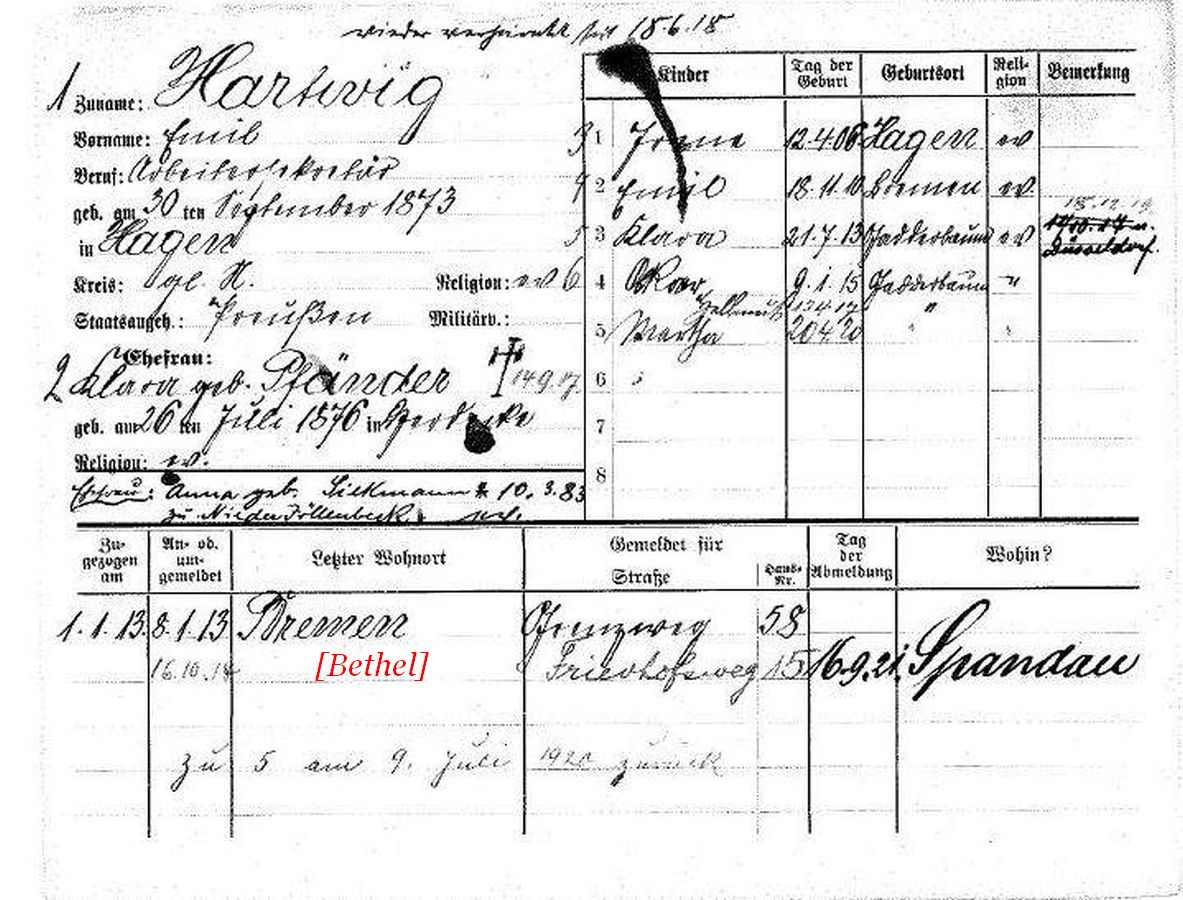 wieder verheiratet seit 18.6.18
1 Zuname: Hartwig
Vorname: Emil
Beruf: Arbeitersekretär
geb. am 30 ten September 1873
in Hagen
Kreis: gl. N. Religion: ev
Staatsangeh.: Preußen Militärv.:
Ehefrau:
2 Klara geb. Pfänder † 14.9.17
geb. am 26 ten Juli 1876 in
Religion: ev.
Ehefrau: Anna geb. Siekmann * 10.3.83
zu
Kinder Tag der Geburt Geburtsort Religion Bemerkung
3 1 Irene 12.4.06 Hagen ev
4 2 Emil 18.11.10 Bremen ev.
18.12.19
5 3 Klara 21.7.13 Gadderbaum ev Düsseldorf.
6 4 Oskar 9.1.15 Gadderbaum "
Hellmuth 13.4.17 "
5 Martha 20.4.20 " "
6
7
8
Zu-gezogen am An- od. um-gemeldet Letzter Wohnort Gemeldet für Straße Haus-Nr. Tag der Abmeldung Wohin?
1.1.13. 8.1.13 Bremen 58
16.10.14 [Bethel] Friedhofsweg 15 16.9.21. Spandau
zu 5 am 9. Juli 1920 zurück